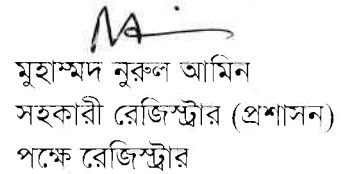 মুহাম্মদ নুরুল আমিন
সহকারী রেজিস্ট্রার (প্রশাসন)
পক্ষে রেজিস্ট্রার